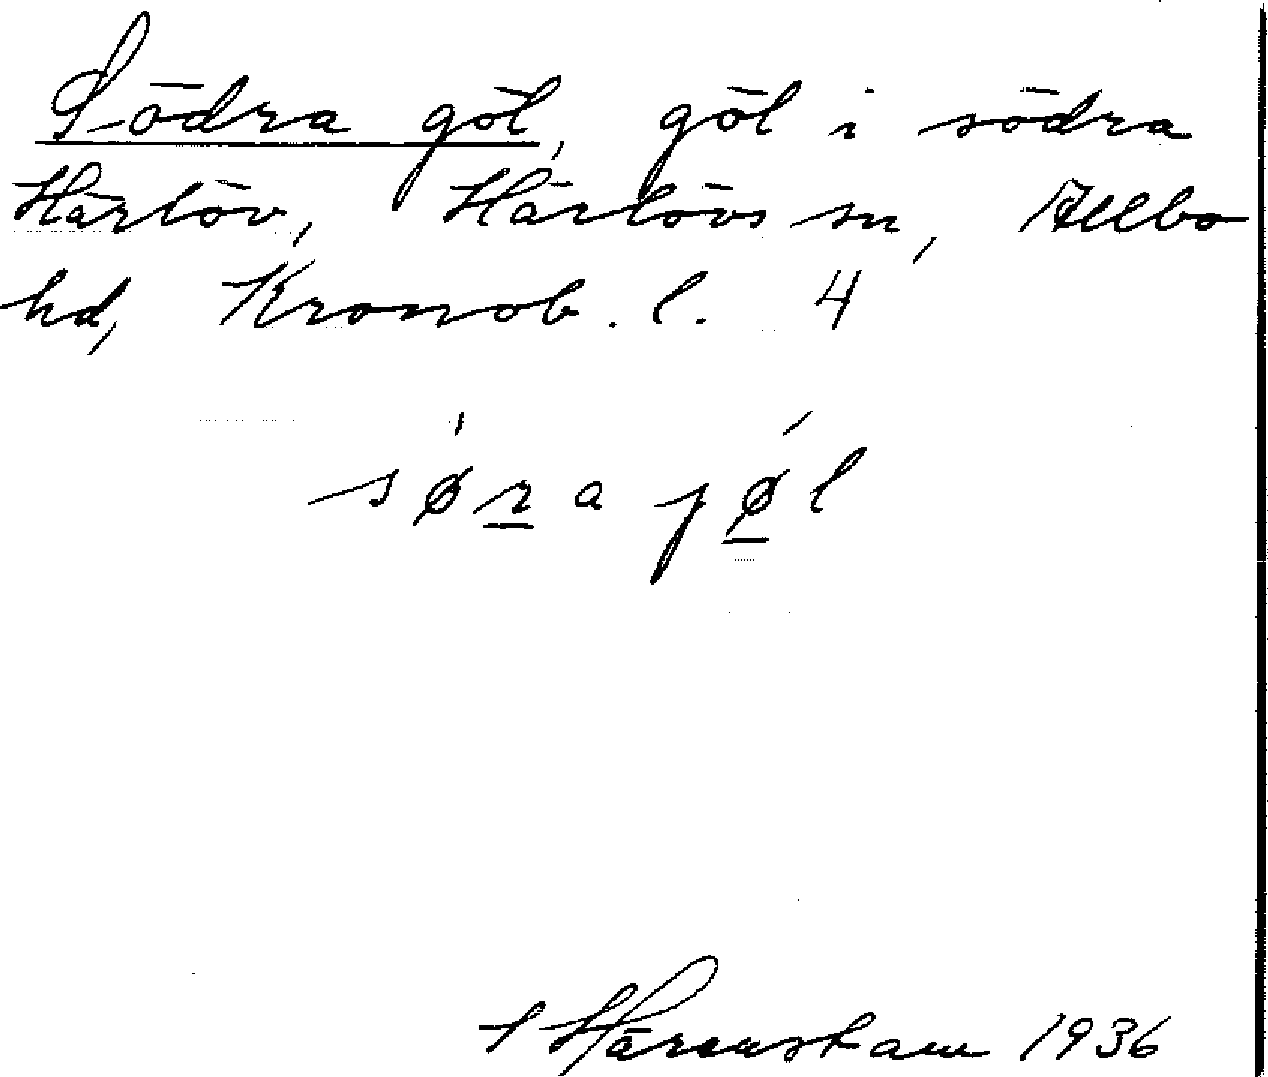 Södra göl, göl i södra
Härlöv, Härlövs sn, Allbo
hd, Kronob. l. 4
sǿra jǿl
S Härenstam 1936